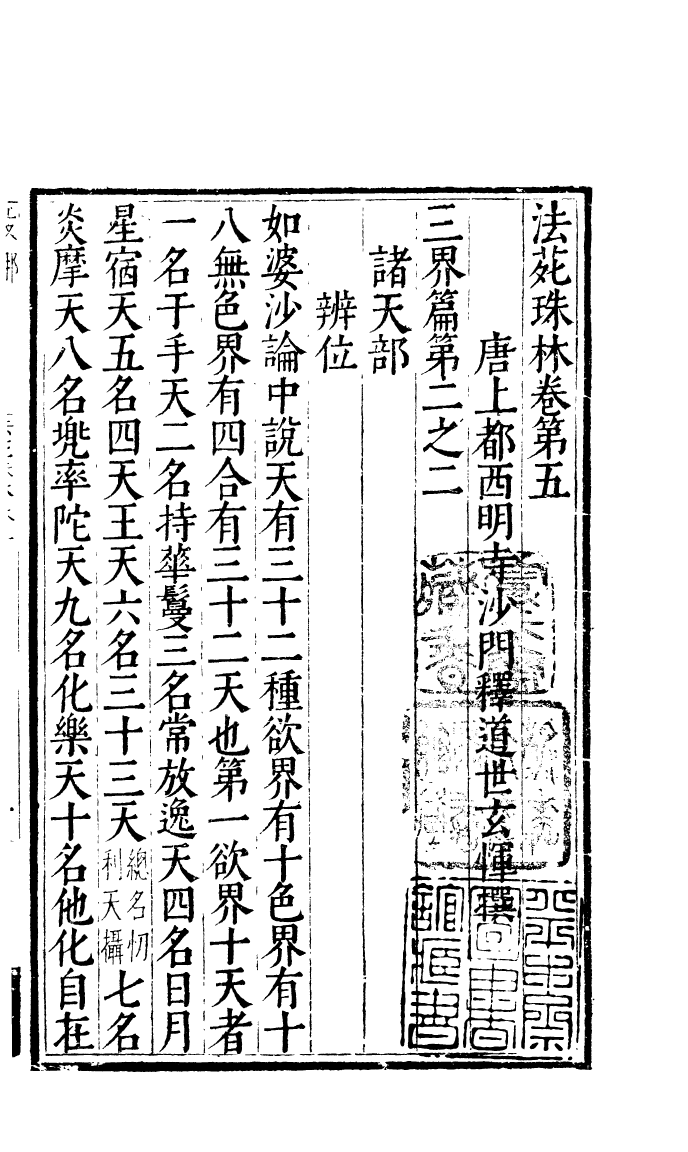 法苑珠林卷第五
唐上都西明寺沙門釋道世玄惲撰
三界篇第二之二
諸天部
辨位
如婆沙論中說天有三十二種欲界有十色界有十
八無色界有四合有三十二天也第一欲界十天者
一名于手天二名持華鬘三名常放逸天四名日月
星宿天五名四天王天六名三十三天總名忉利天攝七名
炎摩天八名兠率陀天九名化樂天十名他化自在